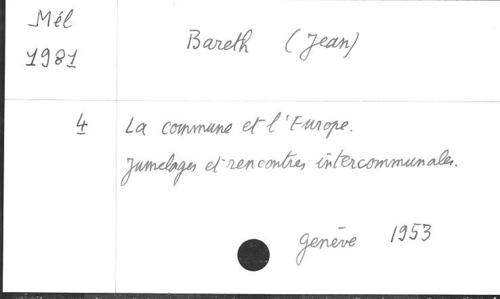 Mél
1981
Bareth (Jean)
4
La commune et l'Europe.
Jumelages et rencontres intercommunales.
Genève 1953